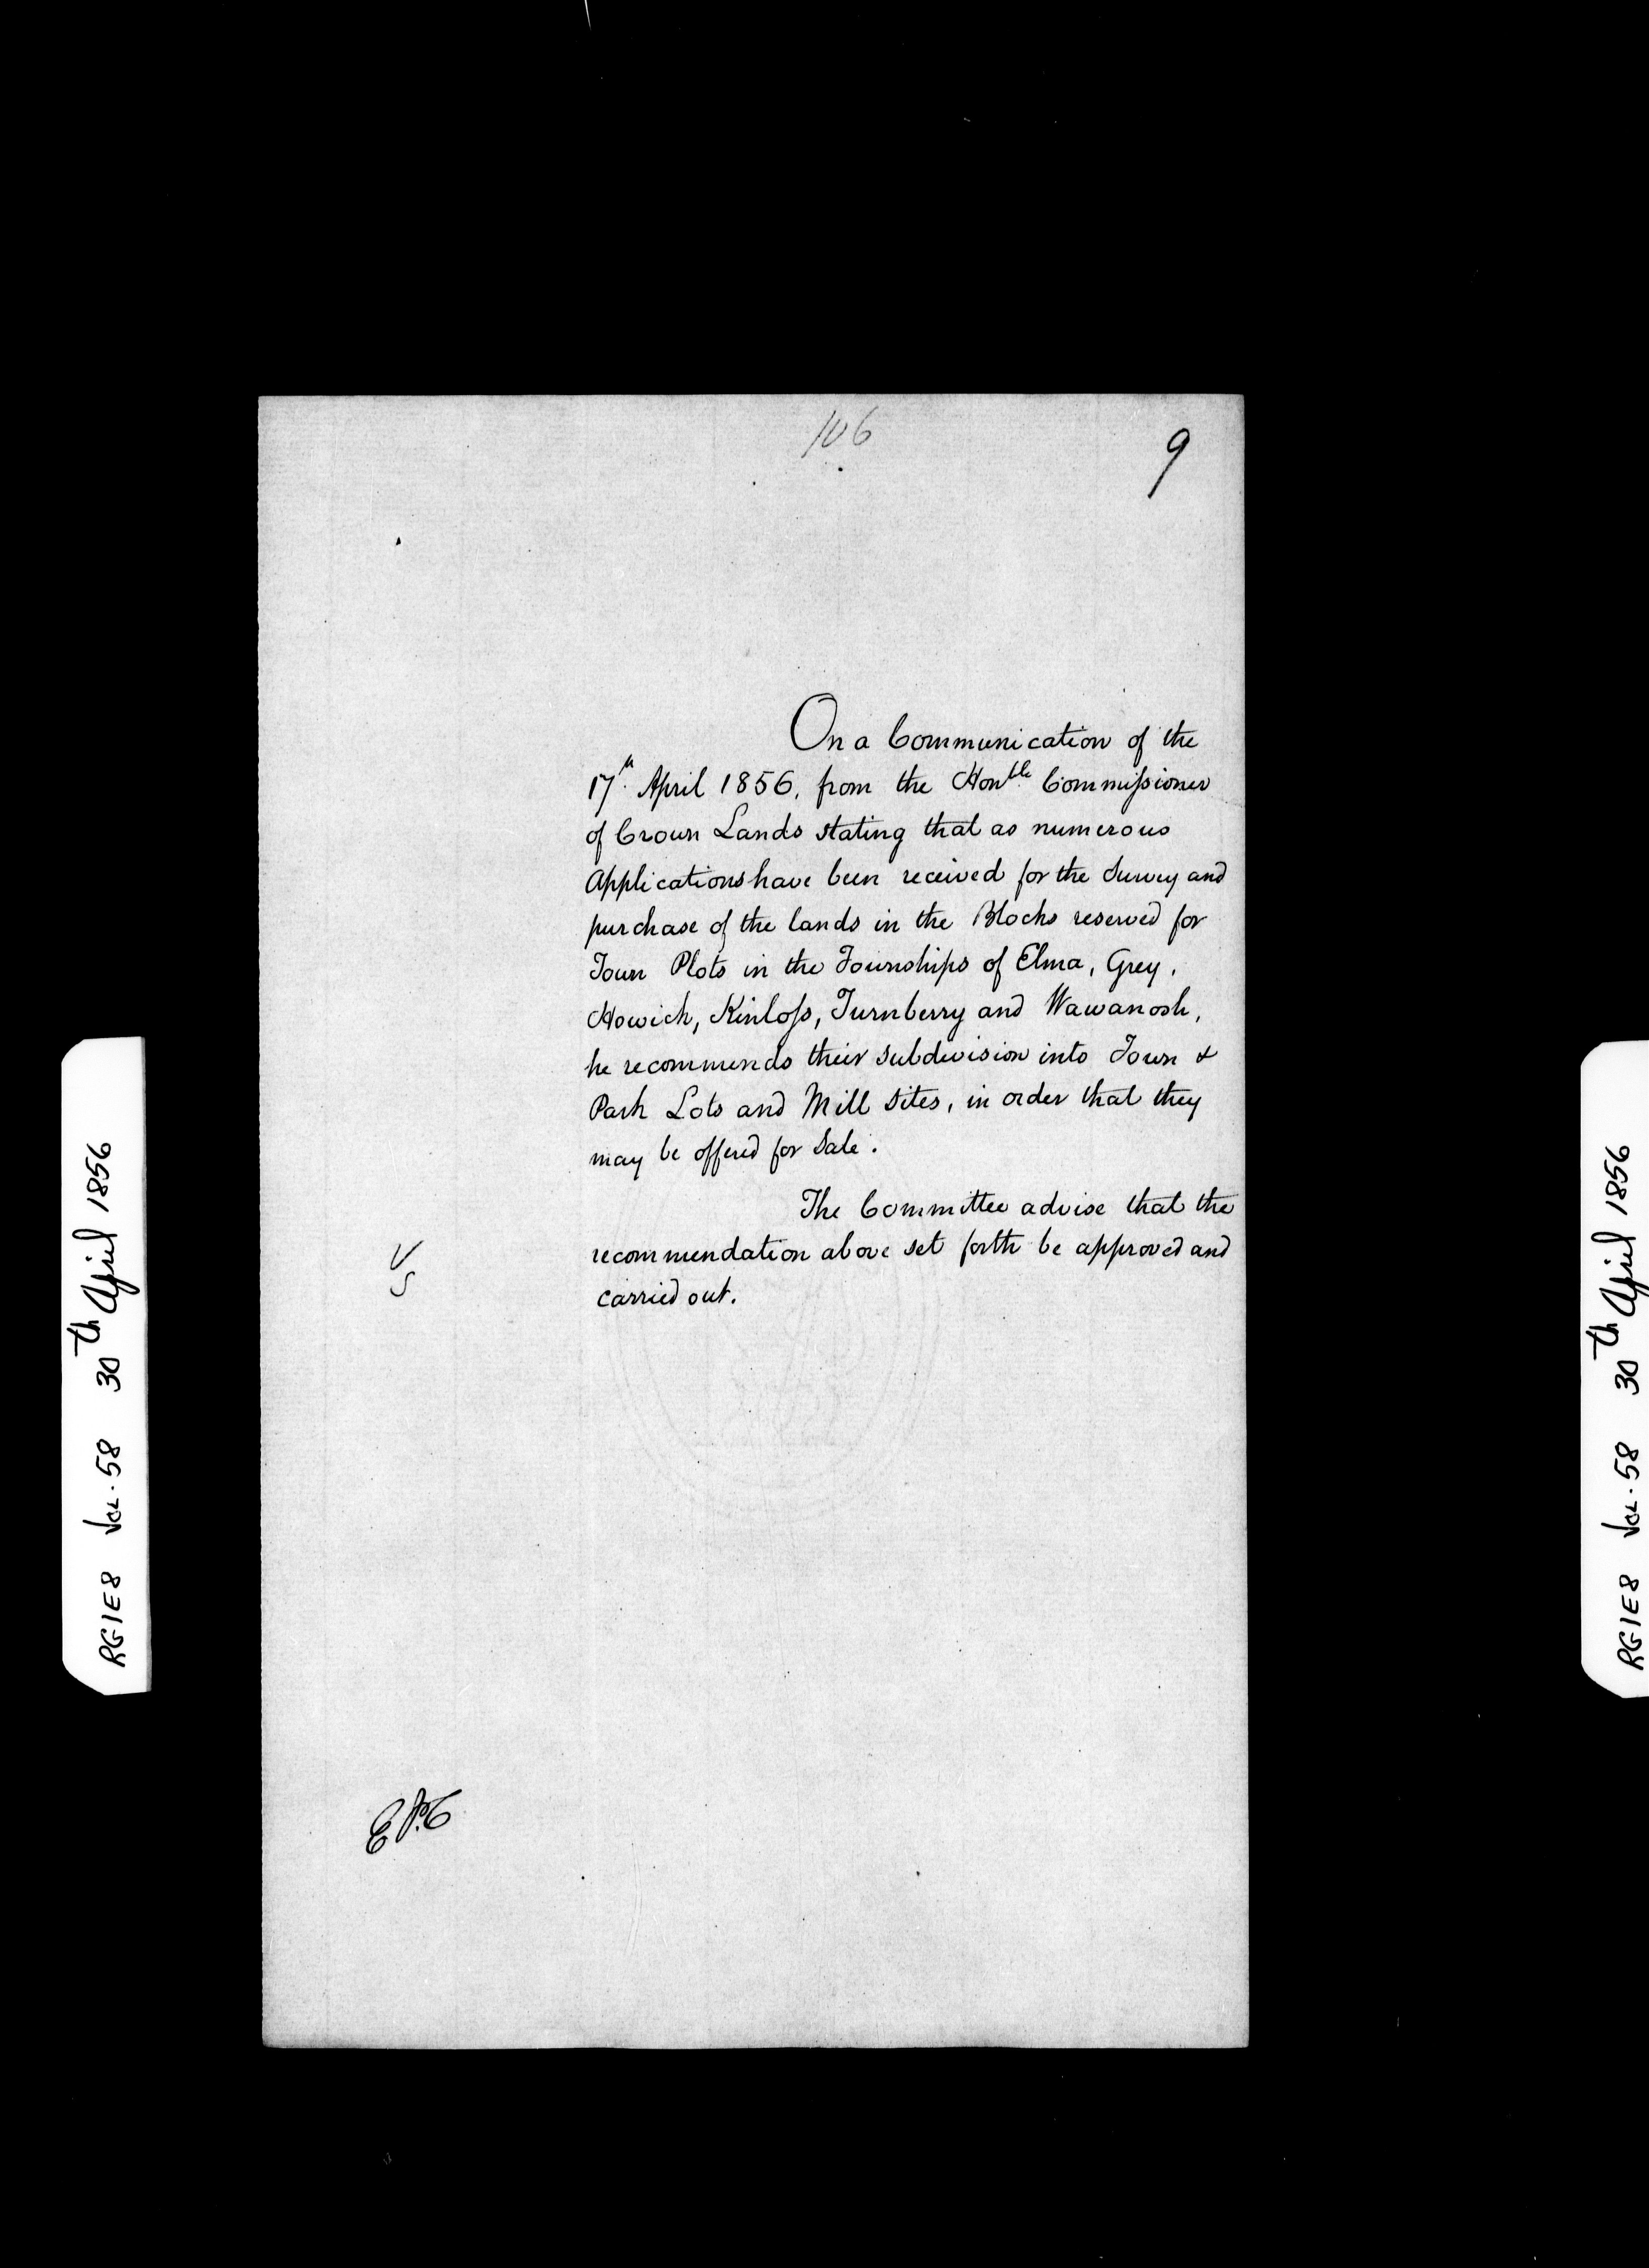 106
9
On a Communication of the
17th April 1856, from the Honble Commissioner
of Crown Lands stating that as numerous
Applications have been received for the Survey and
purchase of the lands in the Blocks reserved for
Town Plots in the Townships of Elma, Grey,
Howick, Kinloss, Turnberry and Wawanosh,
he recommends their subdivision into Town &
Park Lots and Mill Sites, in order that they
may be offered for Sale.
The Committee advise that the
recommendation above set forth be approved and
carried out.
RG1E8 Vol. 58 30th April 1856
RG1E8 Vol. 58 30th April 1856